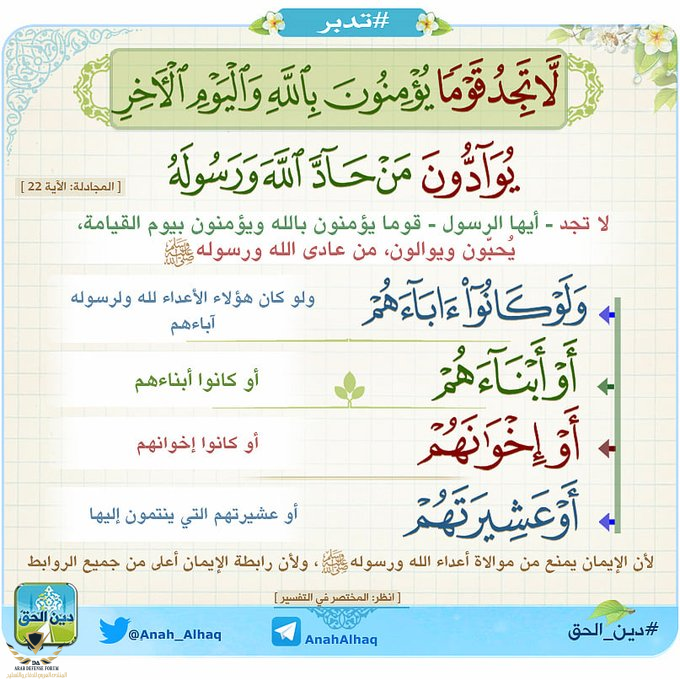 #تدبر
لَّا تَجِدُ قَوْمًا يُؤْمِنُونَ بِٱللَّهِ وَٱلْيَوْمِ ٱلْأَخِرِ
يُوَآدُّونَ مَنْ حَآدَّ ٱللَّهَ وَرَسُولَهُ
[ المجادلة: الآية 22 ]
لا تجد - أيها الرسول - قوما يؤمنون بالله ويؤمنون بيوم القيامة،
يُحبّون ويوالون، من عادى الله ورسوله ﷺ
وَلَوْ كَانُوٓا۟ ءَابَآءَهُمْ
ولو كان هؤلاء الأعداء لله ولرسوله
آباءهم
أَوْ أَبْنَآءَهُمْ
أو كانوا أبناءهم
أَوْ إِخْوَٰنَهُمْ
أو كانوا إخوانهم
أَوْ عَشِيرَتَهُمْ
أو عشيرتهم التي ينتمون إليها
لأن الإيمان يمنع من موالاة أعداء الله ورسوله ﷺ ، ولأن رابطة الإيمان أعلى من جميع الروابط
[ انظر: المختصر في التفسير ]
#دين_الحق
AnahAlhaq
@Anah_Alhaq
دين الحق
ARAB DEFENSE FORUM